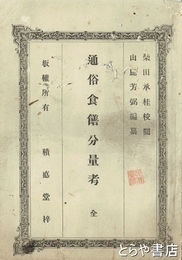 柴田承桂校閲
山田芳弼編纂
通俗食饍分量考 全
板權所有 積善堂梓
とらや書店